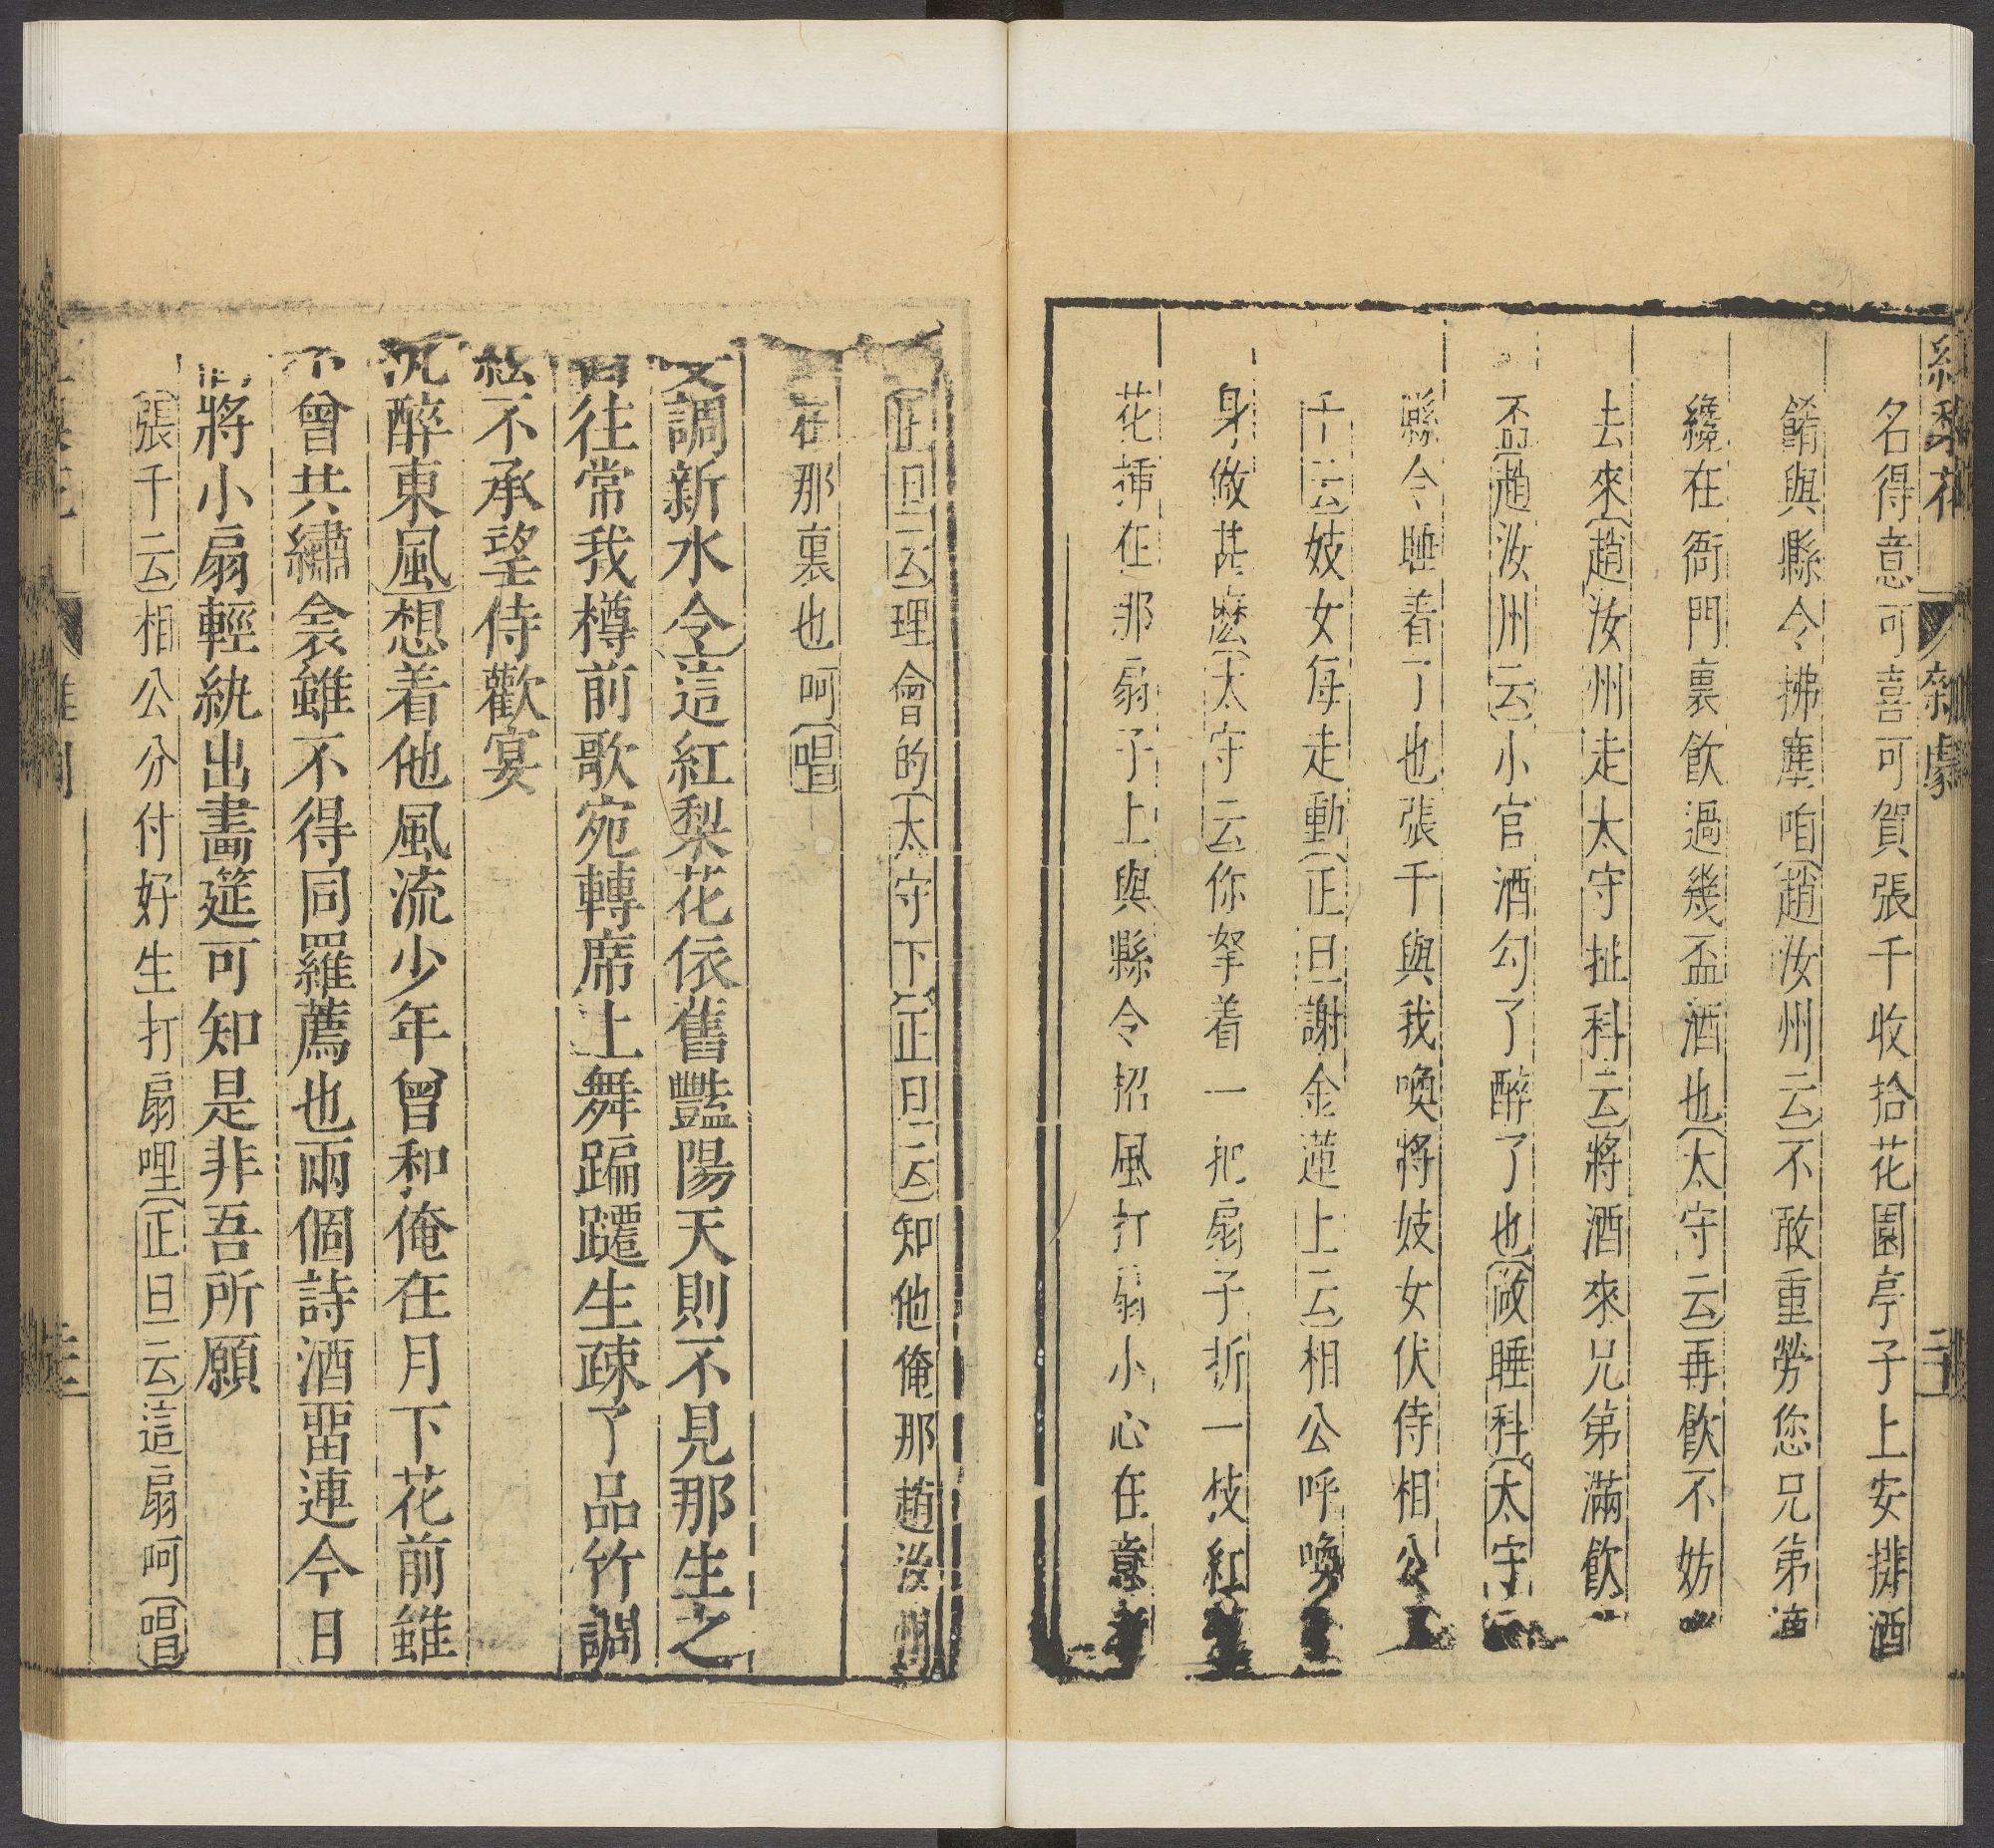 紅梨花
雜劇
名得意可喜可賀張千收拾花園亭子上安排酒
餚與縣令拂塵咱(趙汝州云)不敢重勞您兄弟適
纔在衙門裏飲過幾盃酒也(太守云)再飲不妨
去來(趙汝州走太守扯科云)將酒來兄弟滿飲
盃(趙汝州云)小官酒勾了醉了也(做睡科)(太守
縣令睡着了也張千與我喚將妓女伏侍相公
千云)妓女每走動(正旦謝金蓮上云)相公呼喚
身做甚麽(太守云)你拏着一把扇子折一枝紅
花揷在那扇子上與縣令招風打扇小心在意者
(正旦云)理會的(太守下)(正旦云)知他俺那趙汝州
在那裏也呵(唱)
調新水令)這紅梨花依舊豔陽天則不見那生之
往常我樽前歌宛轉席上舞蹁躚生疎了品竹調
絃不承望侍歡宴
沉醉東風)想着他風流少年曾和俺在月下花前雖
不曾共繡衾雖不得同羅薦也兩個詩酒畱連今日
將小扇輕紈出畫筵可知是非吾所願
(張千云)相公分付好生打扇哩(正旦云)這扇呵(唱)